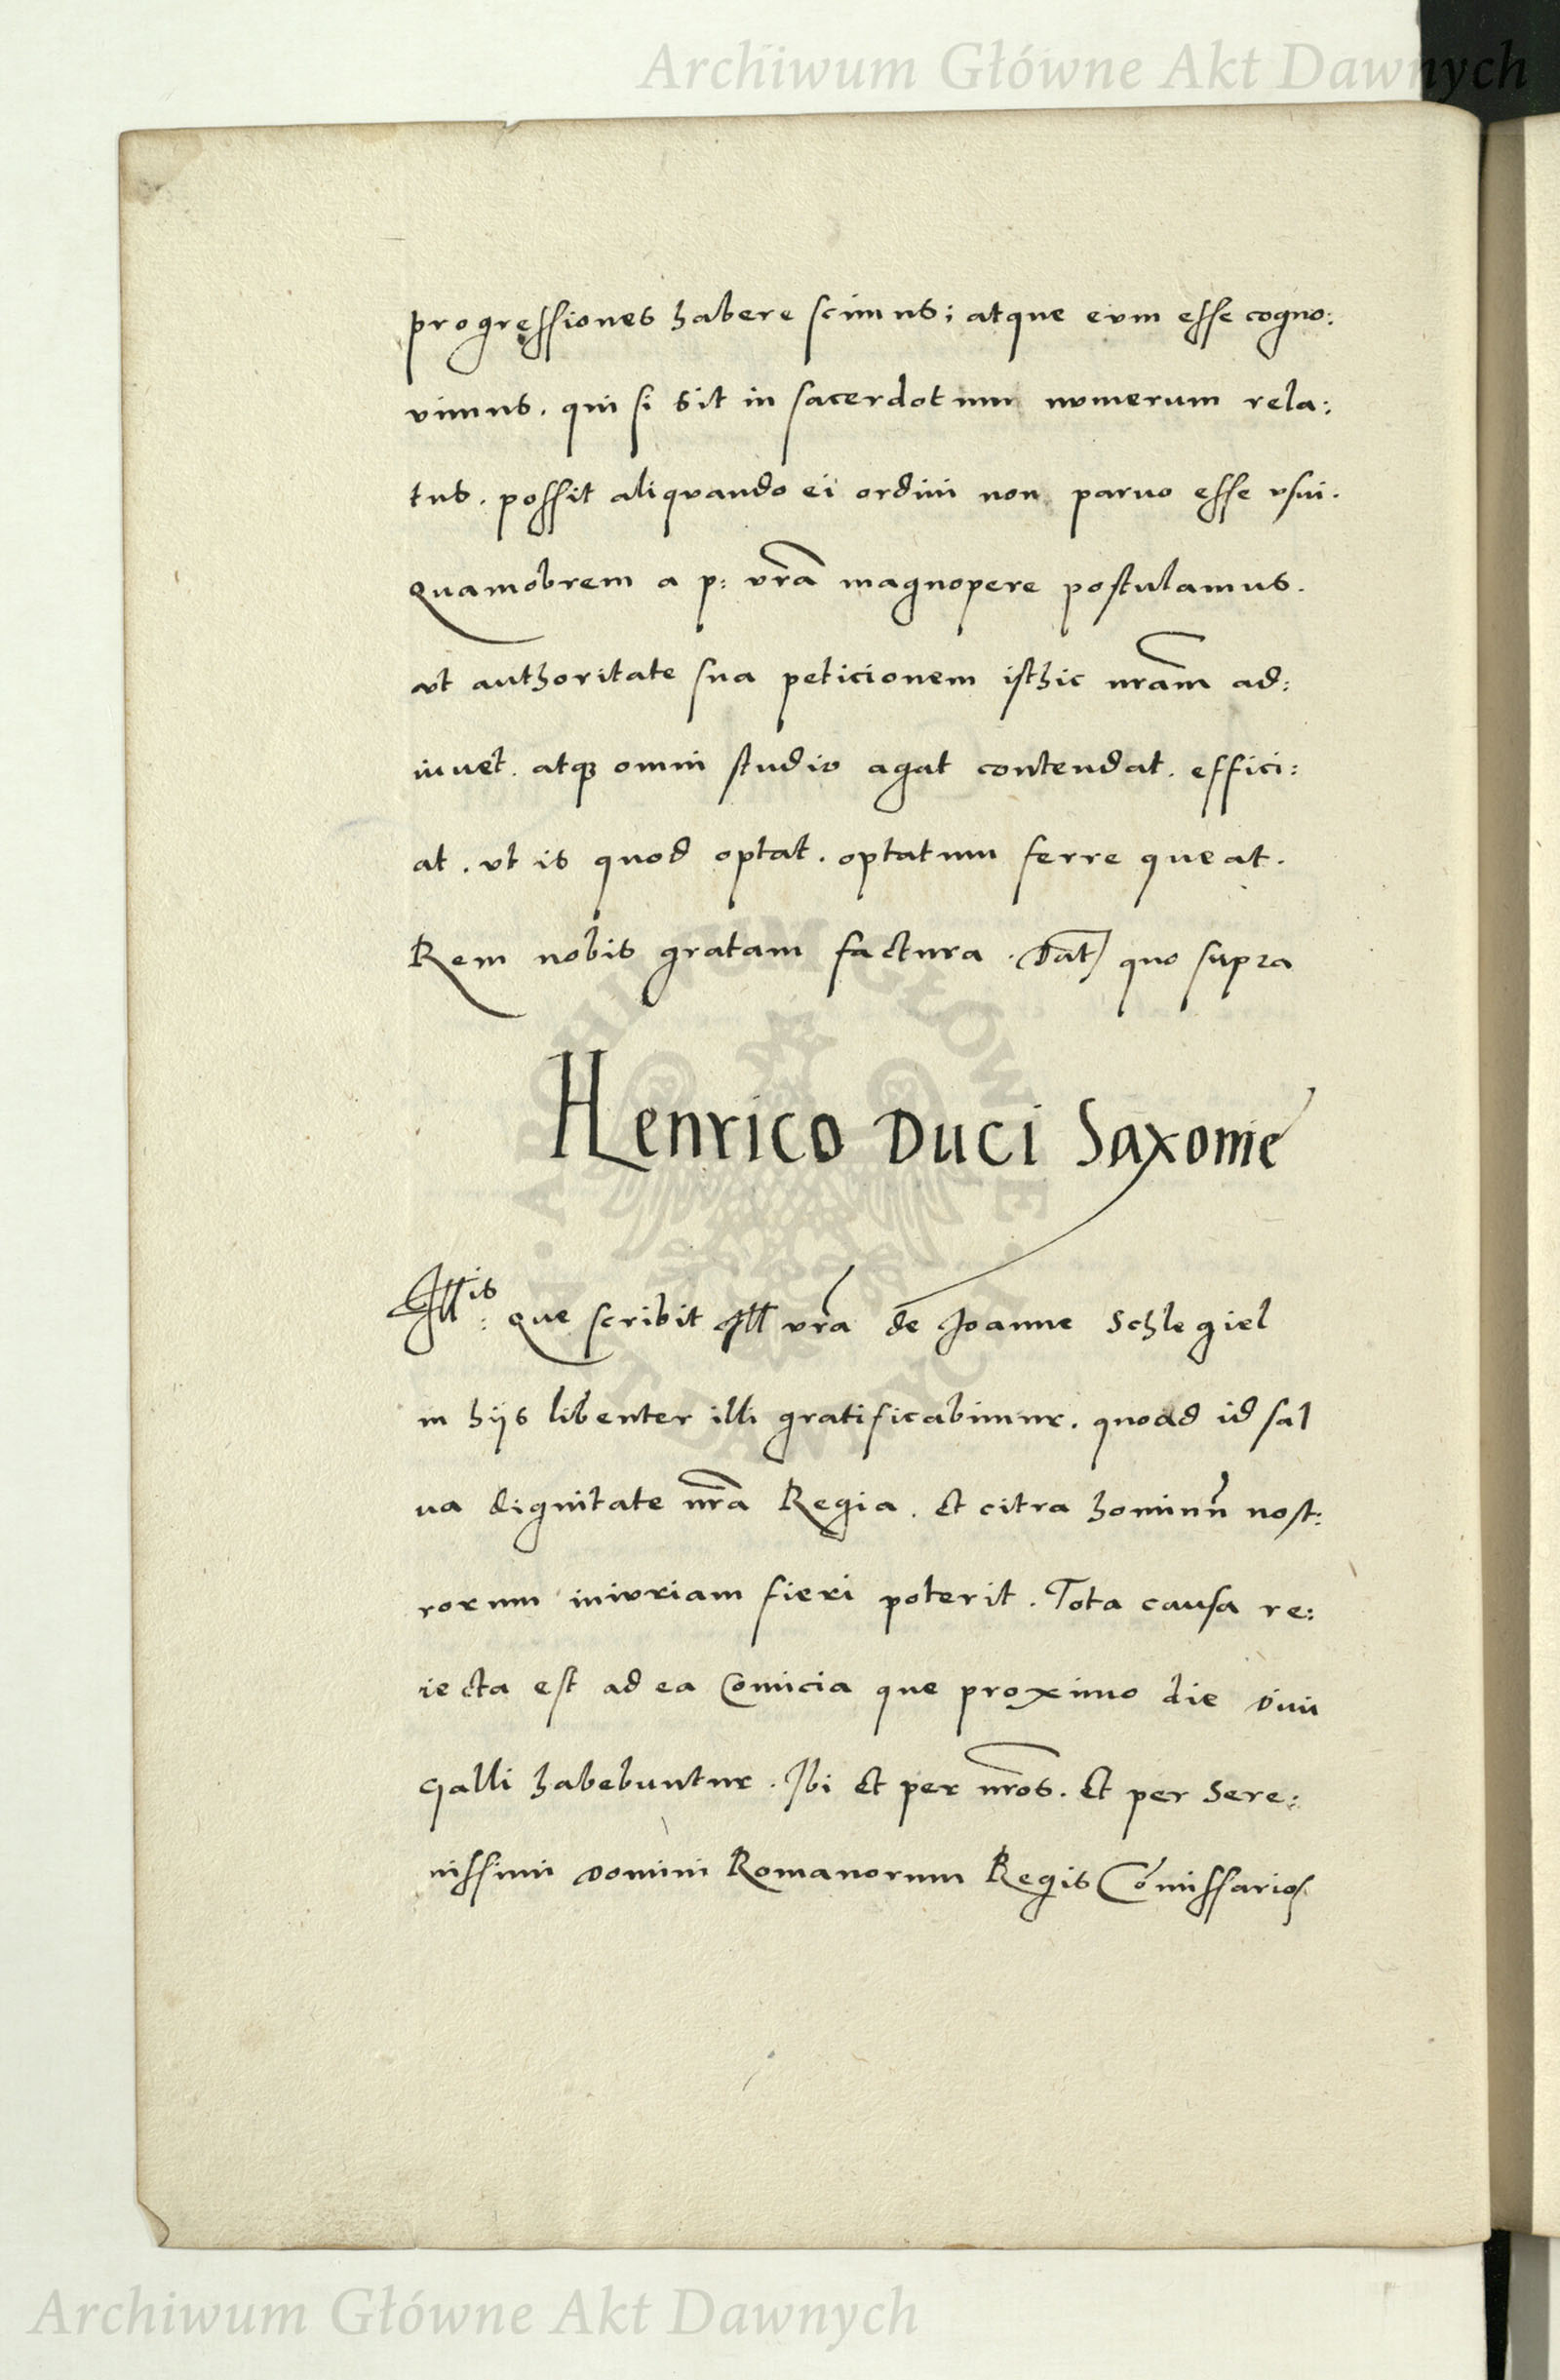 Archiwum Główne Akt Dawnych
progręssiones habere scimus; atque eum esse cogno:
vimus. qui si sit in sacerdotum numerum rela:
tus. possit aliquando ei ordini non paruo esse vsui.
Quamobrem a p: vrã magnopere postulamus.
vt authoritate sua peticionem isthic nrãm ad:
iuuet. atqꝫ omni studio agat contendat. effici:
at. vt is quod optat. optatum ferre queat.
Rem nobis gratam factura. Dat̃ quo supra
Henrico Duci Saxonie
Illis: Que scribit Ill vrã de Joanne Schlegiel
in hijs libenter illi gratificabimur. quoad id sal
ua dignitate nrã Regia. et citra hominũ nost:
rorum iniuriam fieri poterit. Tota causa re:
iecta est ad ea Comicia que proximo die Diui
Galli habebuntur. Ibi et per nrõs. et per Sere:
nissimi Domini Romanorum Regis Cõmissarios
ARCHIWUM GŁÓWNE AKT DAWNYCH
Archiwum Główne Akt Dawnych